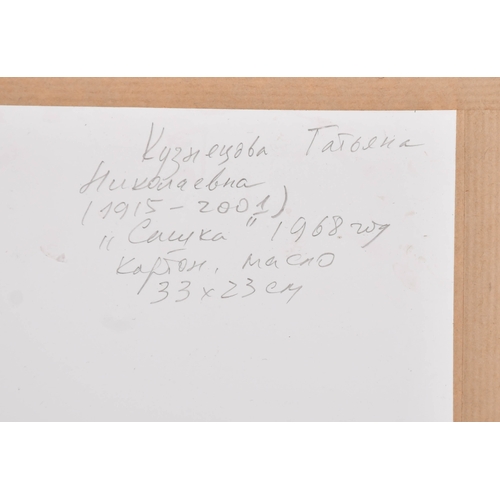 Кузнецова Татьяна
Николаевна
(1915-2001)
„Сашка" 1968.год
картон, масло
33x23 см